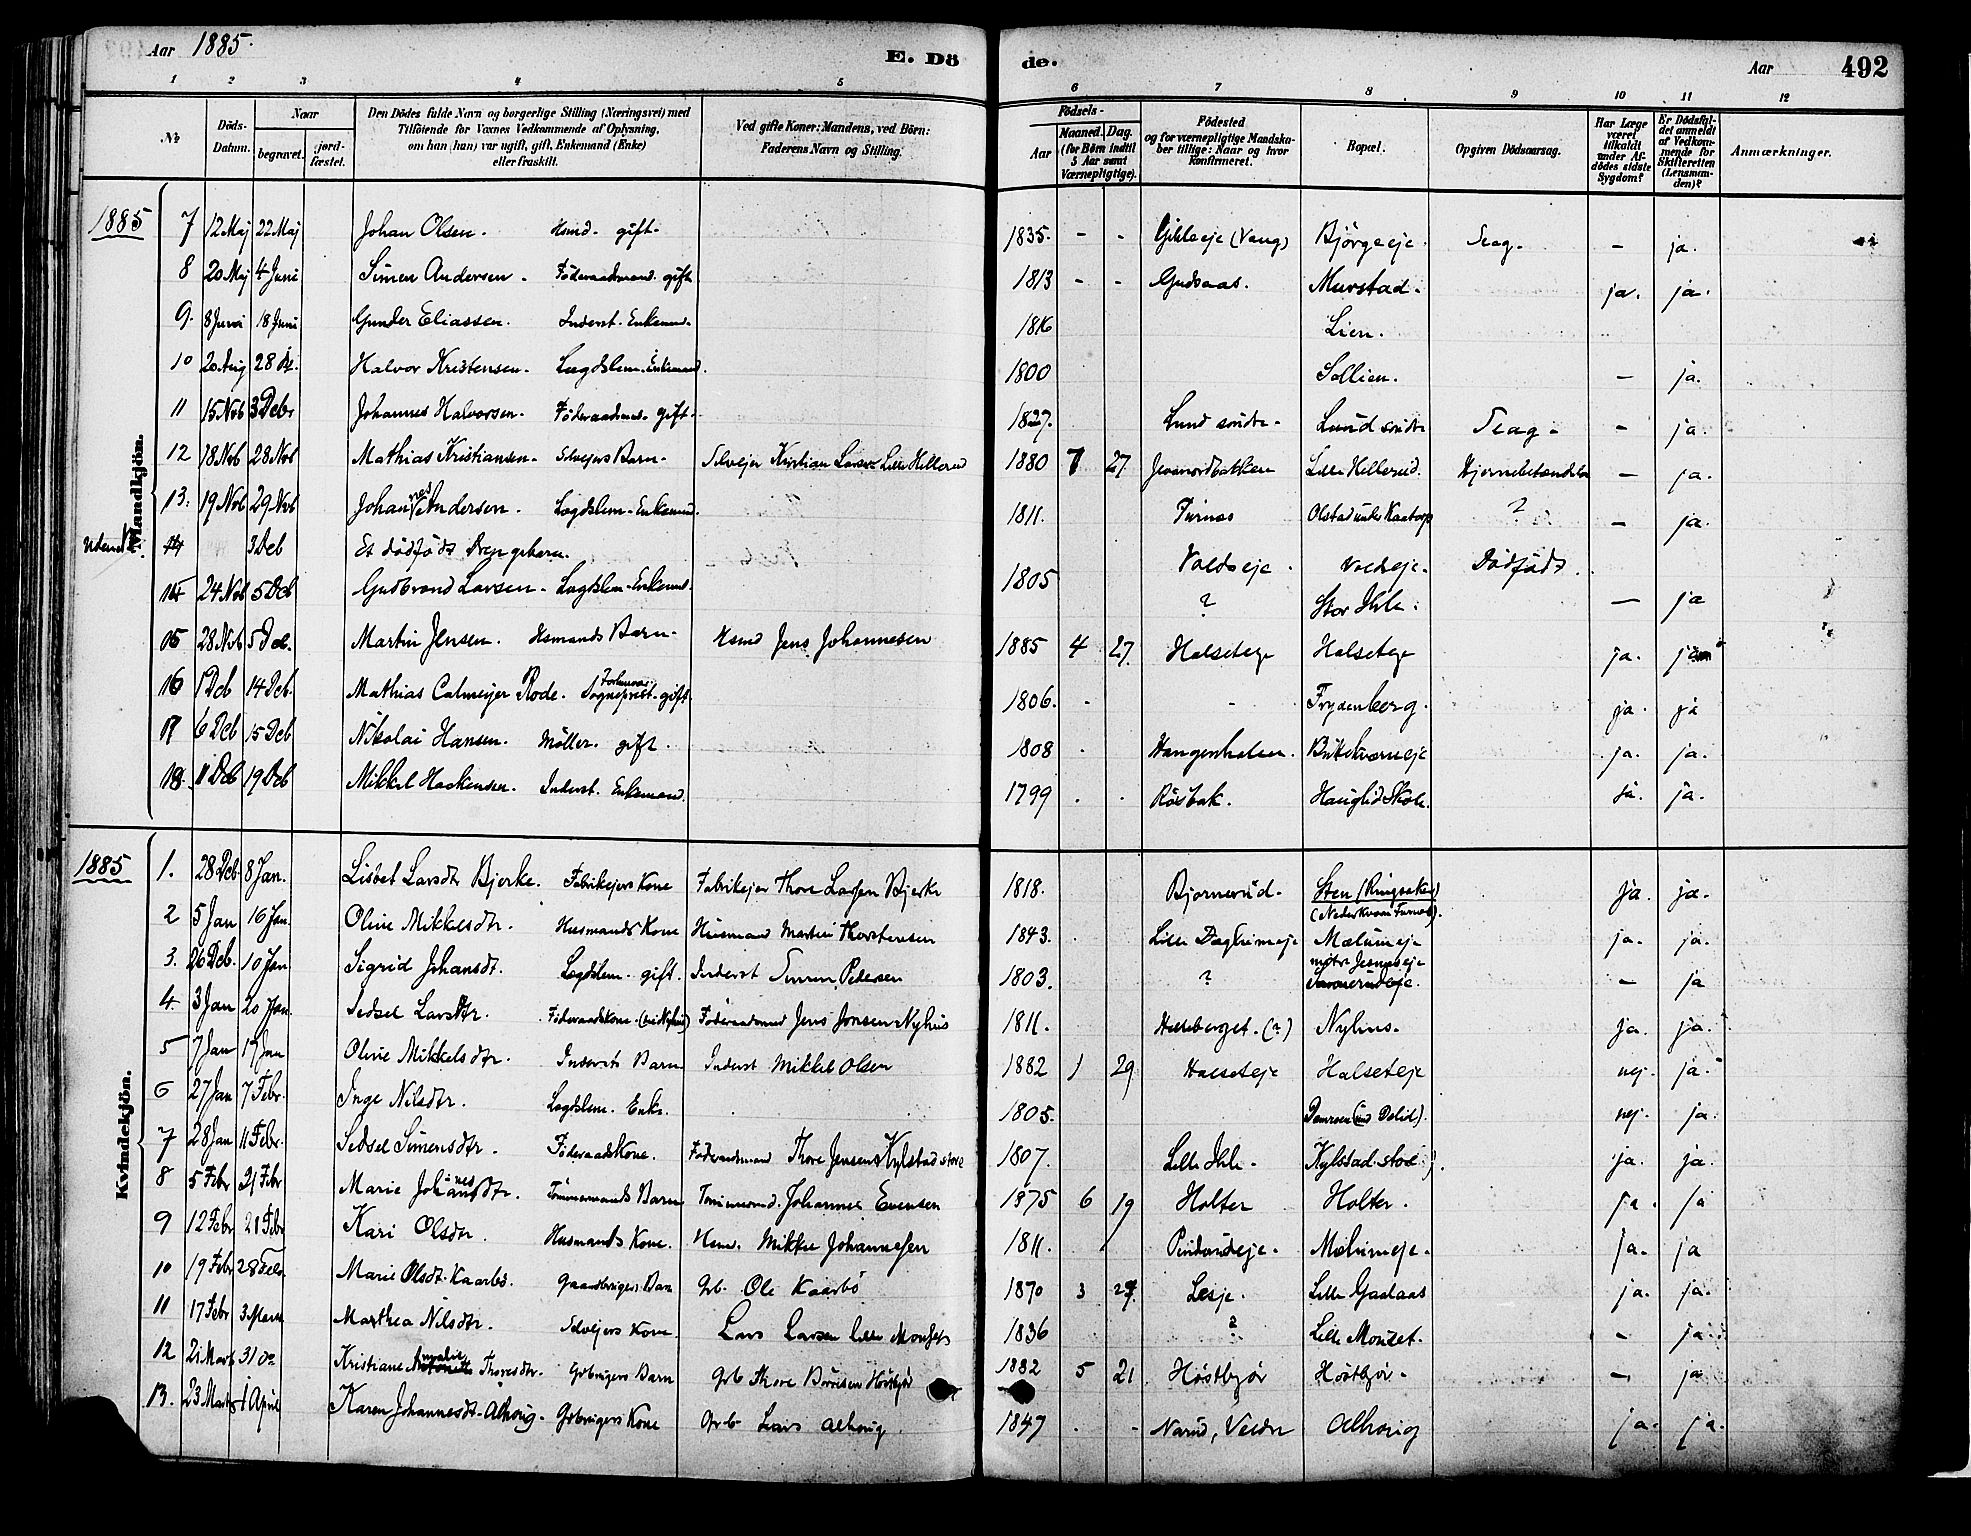 Aar 1885.
E. Dö de.
Aar 492
1 2 3 4 5 6 7 8 9 10 11 12
Nr.
Döds-Datum.
Naar
begravet.
jord-fæstet.
Den Dödes fulde Navn og borgerlige Stilling (Næringsvei) med
Tilföiende for Voxnes Vedkommende af Oplysning,
om han (hun) var ugift, gift, Enkemand (Enke)
eller fraskilt.
Ved gifte Koner: Mandens, ved Börn:
Faderens Navn og Stilling.
Födsels-
Aar
Maaned. Dag.
(for Börn indtil
5 Aar samt
Værnepligtige).
Födested
og for værnepligtige Mandska-
ber tillige: Naar og hvor
Konfirmeret.
Bopæl.
Opgiven Dödsaarsag.
Har Læge
været
tilkaldt
under Af-
dödes sidste
Sygdom?
Er Dödsfal-
det anmeldt
af Vedkom-
mende for
Skifteretten
(Lensman-
den)?
Anmærkninger.
Mandkjön.
1885 7 12 Maj 22 Maj Johan Olsen. Hsmd. gift. 1835. - - (Vang) Bjørgeeje. - ja.
8 20 Maj 4 Juni Simen Andersen. Föderaadsmand. gift 1813 - - Gudsaas. Murstad. ja. ja.
9. 8 Juni 18 Juni Gunder Eliassen. Inderst. Enkemd. 1816 Lien.
10 20 Aug 28 Halvor Kristensen. Lægdslem. Enkemand. 1800 Sollien. - ja.
11 15 Nov 3 Debr Johannes Halvorsen. Föderaadsmd. gift. 1827. Lund søndre. Lund søndre - ja.
12 18 Nov 28 Nov Mathias Kristiansen. Selvejers Barn. Selvejer Kristian Larsen Lille Hellerud 1880 7 27 Lille Hellerud. Hjernebetændelse - ja.
13. 19 Nov 29 Nov Johannes Andersen. Lægdslem. Enkemd. 1811. Furnes Olstad under ? - ja.
3 Deb Et dödfödt Drengebarn. Voldseje. Voldseje. Dödfödt.
24 Nov 5 Deb Gudbrand Larsen. Lægdslem. Enkemd. 1805 ? Stor Ihle. - ja
15 28 Nov 5 Deb. Martin Jensen. Hsmands Barn. Hsmd Jens Johannesen 1885 4 27. Halseteje Halseteje ja. ja
16 1 Deb 14 Deb. Mathias Calmeijer Rode. Forhenv. Sogneprest. gift. 1806. - - Frydenberg. ja. ja
17 6 Deb 15 Deb Nikolai Hansen. Møller. gift. 1808 . ja. ja.
18. 11 Deb 19 Deb Mikkel Haakensen. Inderst. Enkemand. 1799 . . Røsbak. Hauglid Skole. ja. ja.
Kvindekjön.
1885 1. 28 Deb. 8 Jan. Lisbet Larsdtr Bjerke. Fabrikejers Kone Fabrikejer Thore Larsen Bjerke 1818. Bjørnerud. Sten (Ringsaker) (Nederkvern Furnes). ja. ja.
2 5 Jan 16 Jan. Oline Mikkelsdtr. Husmands Kone Husmand Martin Thorstensen 1843. Lille Dæglumeje Mælumeje ja. ja.
3. 26 Deb. 10 Jan Sigrid Johansdt. Lægdslem. gift. Inderst Simen Pedersen 1803. ? - ja
4. 3 Jan 20 Jan. Sedsel Larsdtr. Föderaadskone. Föderaadsmd Jens Jonsen Nyhus 1811. (?) Nyhus. ja. ja.
5 7 Jan 17 Jan Oline Mikkelsdtr. Indersts Barn Inderst Mikkel Olsen 1882 1 29 Halseteje Halseteje nej. ja.
6 27 Jan 7 Febr. Inge Nilsdtr. Lægdslem. Enke. 1805. nej. ja.
7 28 Jan 11 Febr. Sedsel Simensdtr. Föderaadskone. Föderaadsmand Thore Jensen Kylstad store 1807. Lille Ihle. Kylstad store. ja. ja.
8 5 Febr 21 Febr Marie Johannesdtr. Tömmermands Barn Tömmermd. Johannes Evensen 1875 6 19 Holter Holter. ja. ja
9 12 Febr 21 Febr Kari Olsdtr. Husmands Kone. Hsmd. Mikkel Johannesen 1811. Mælumeje. ja. ja
10 19 Febr 28 Febr. Marie Olsdtr. Kaarbø. Gaardbrugers Barn Grb. Ole Kaarbø 1870 3 27. Lesje. Lille Gaalaas ja. ja.
11 17 Febr 3 Marts Marthea Nilsdtr. Selvejers Kone. Lars Larsen Lille Monset 1836 ? Lille Monset. - ja.
12 21 Marts 31 do Kristiane Amalie Thoresdtr. Grbrugers Barn Grb Thore Börresen Høstbjør 1882 5 21 Høstbjør Høstbjør. - ja
13. 23 Marts 1 April Karen Johannesdt. Alhaug. Grbrugers Kone Grb Lars Alhaug. 1847 . - Narud, Veldre Alhaug ja. ja.